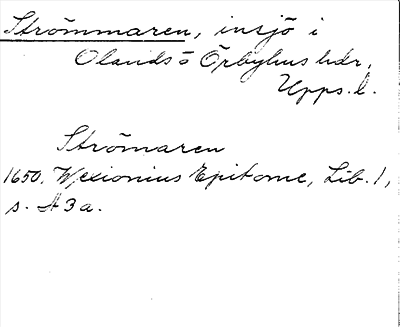 Strömmaren, insjö i
Olands o Örbyhus hdr,
Upps. l.
Strömaren
1650. Wexionius Epitome, Lib. 1,
s. A3a.